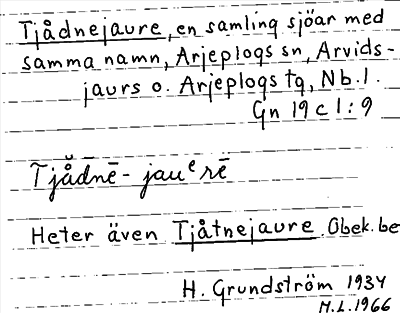 Tjådnejaure, en samling sjöar med
samma namn, Arjeplogs sn, Arvids-
jaurs o. Arjeplogs tg, Nb.l.
Gn 19 c 1:9
Tjå̆dnē-jauᵉrē
Heter även Tjåtnejaure. Obek. be
H. Grundström 1934
M.L. 1966